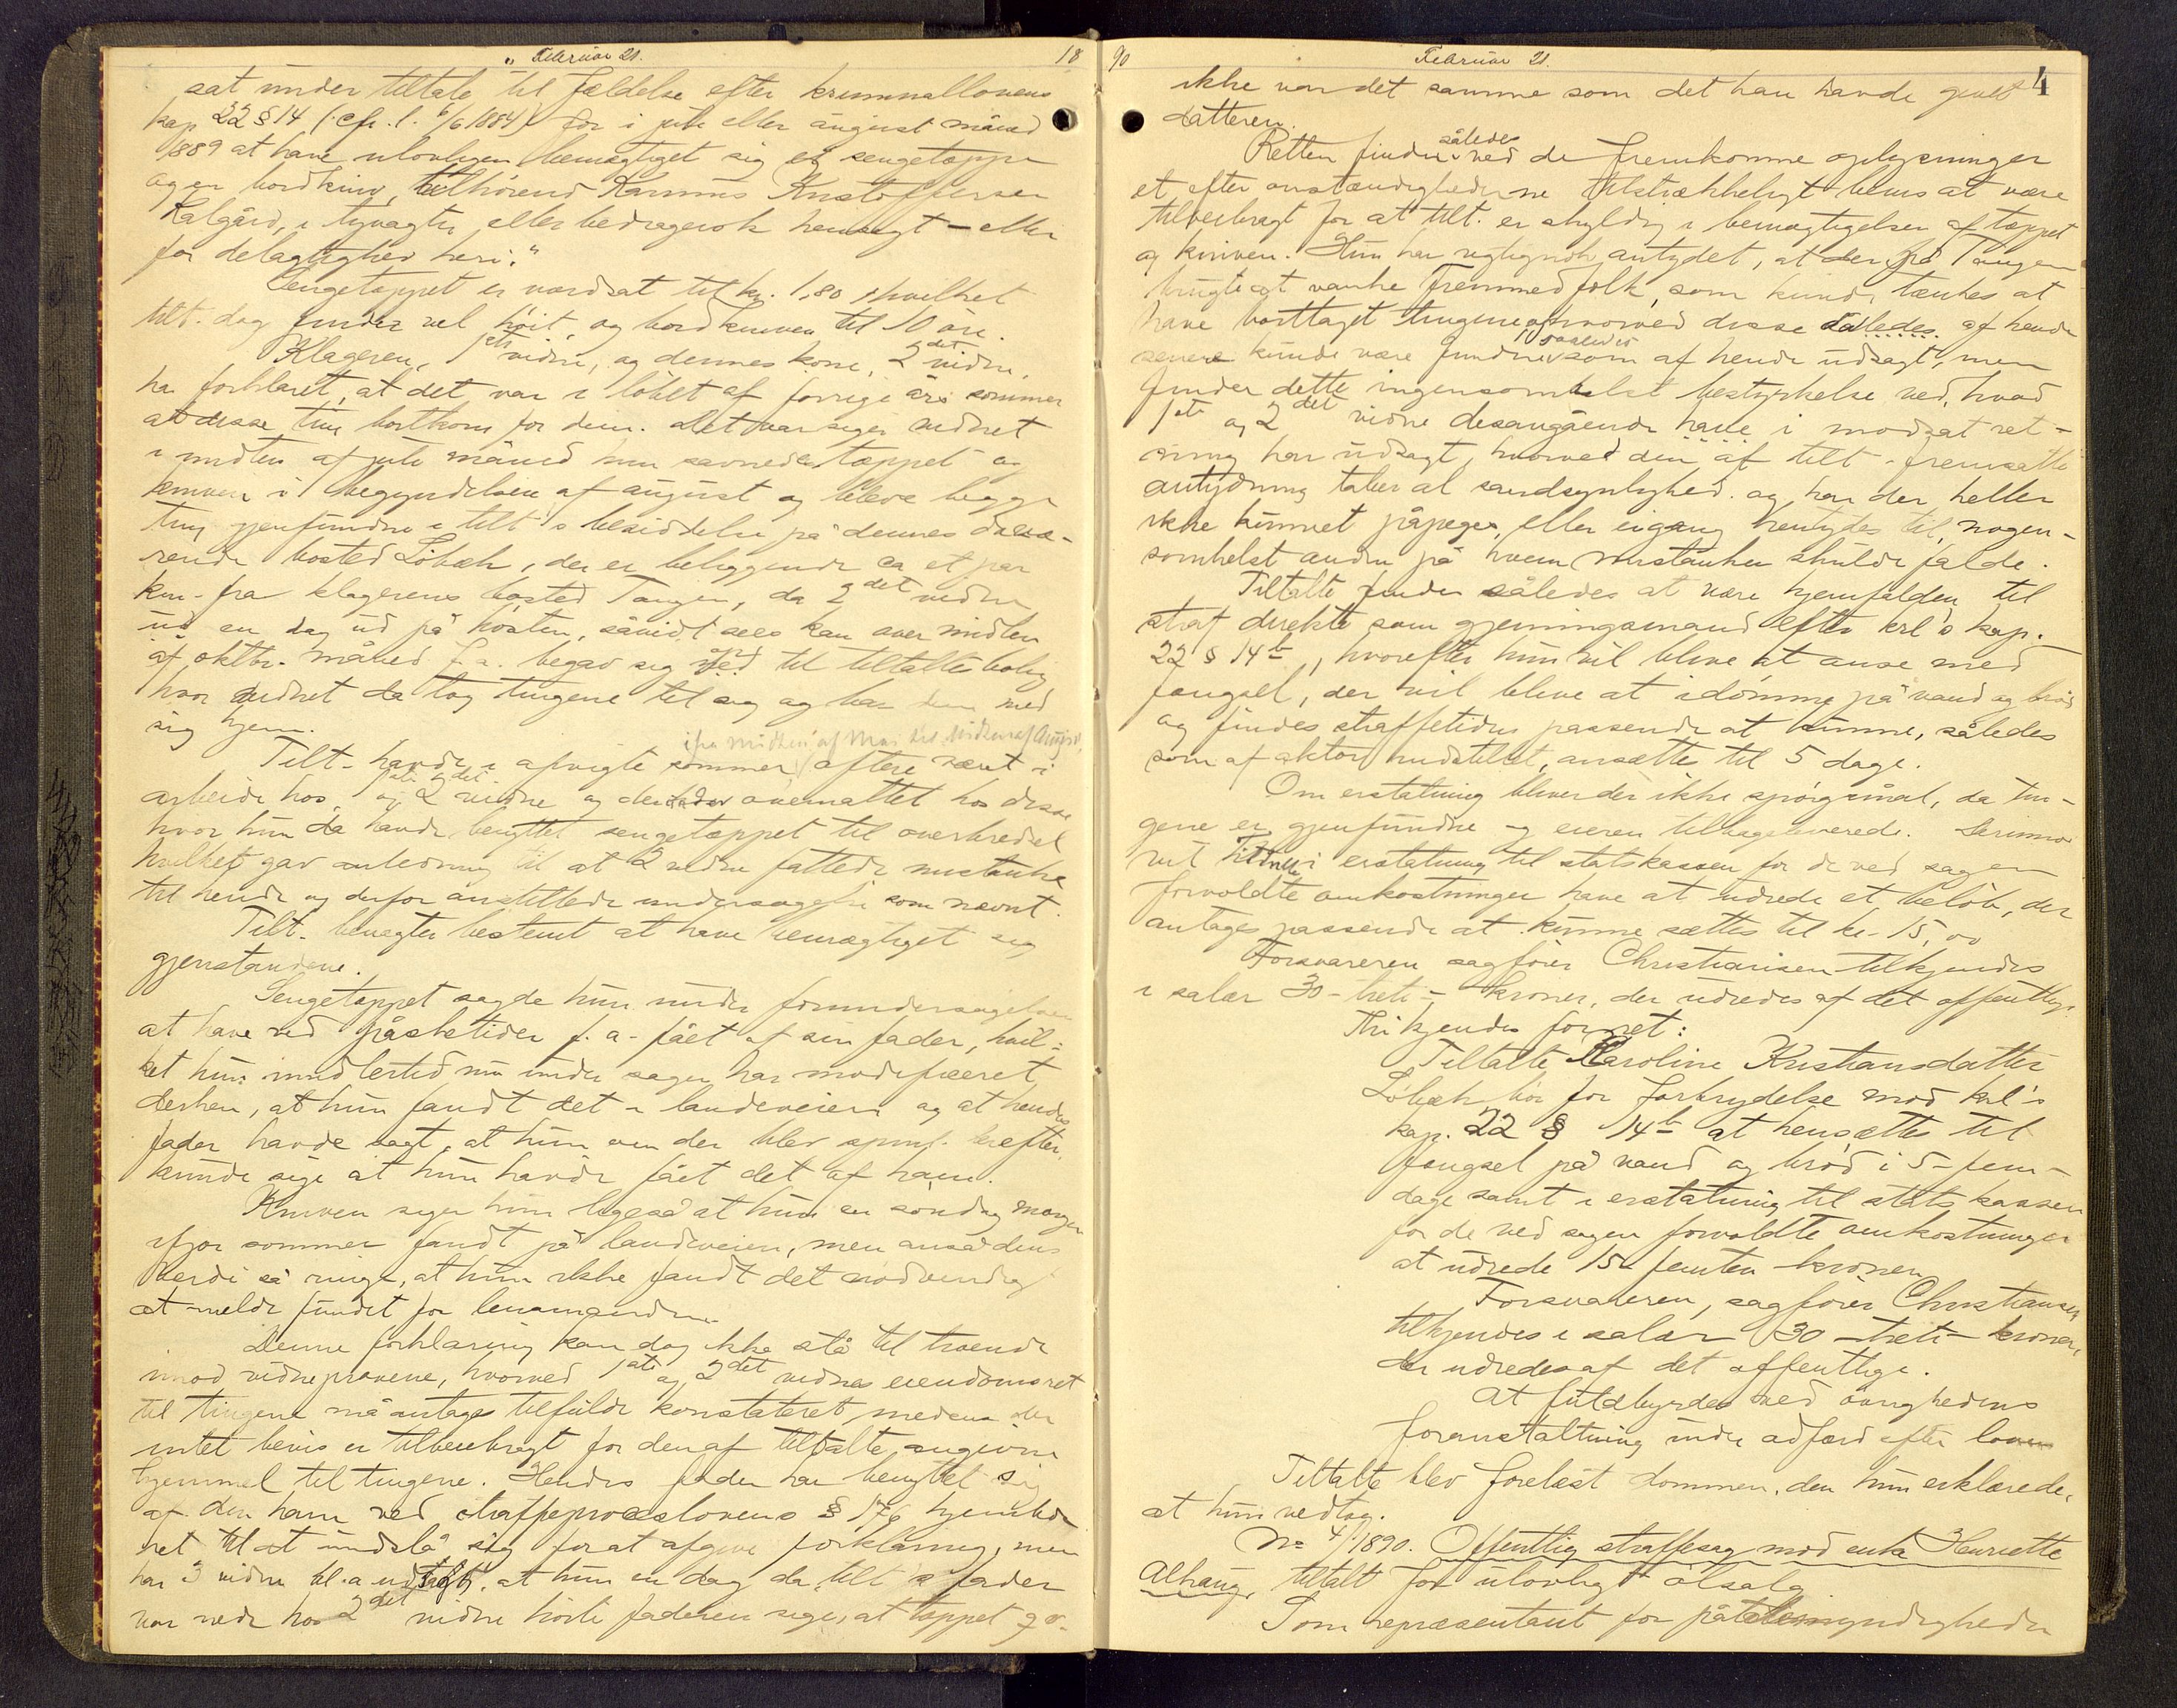 " Februar 21. 18
sat under tiltale til fældelse efter kriminallovens
kap 22 § 14 (cfr. l. 6/6 1884) for i juli eller august måned
1889 at have ulovligen bemægtiget sig et sengetæppe
og en bordkniv, tilhörende Rasmus Kristoffersen
Kalgård, i tyvagtig eller bedragersk hensigt – eller
for delagtighed heri."
Sengetæppet er værdsat til kr. 1,80 hvilket
tilt. dog finder vel höit, og bordkniven til 10 öre.
Klageren, 1ste vidne, og dennes kone, 2det vidne,
har forklaret, at det var i löbet af forrige års sommer
at disse ting bortkom for dem. Det var siger vidnet
i midten af juli måned hun savnede tæppet og
kniven i begyndelsen af august og bleve begge
ting gjenfundne i tilt's besiddelse på dennes davæ-
rende bosted Löbæk, der er beliggende ca et par
km. fra klagerens bosted Tangen, da 2det vidne
ud en dag ud på hösten, såvidt sees kan over midten
af oktbr. måned f. a. begav sig op til tiltaltes bolig
hvor vidnet da tog tingene til sig og bar dem med
sig hjem.
ifra midten af Mai til Midten af August,
Tilt. havde i afvigte sommer oftere været i
arbeide hos 1ste og 2det vidne og der overnattet hos disse
hvor hun da havde benyttet sengetæppet til overbredsel
hvilket gav anledning til at 2 vidne fattede mistanke
til hende og derfor anstillede undersögelse som nævnt.
Tilt. benægter bestemt at have bemægtiget sig
gjenstandene.
Sengetæppet sagde hun under forundersögelsen
at have ved påsketider f. a. fået af sin fader, hvil-
ket hun imidlertid nu under sagen har modificeret
derhen, at hun fandt det i landeveien og at hendes
fader havde sagt, at hun om der blev spurgt derefter,
kunde sige at hun havde fået det af ham.
Kniven siger hun ligeså at hun en söndag morgen
ifjor sommer fandt på landeveien, men anså dens
værdi så ringe, at hun ikke fandt det nödvendigt
at melde fundet for lensmanden.
Denne forklaring kan dog ikke stå til troende
imod vidneprovene, hvorved 1ste og 2det vidnes eiendomsret
til tingene må antages tilfulde konstateret, medens der
intet bevis er tilveiebragt for den af tiltalte angivne
hjemmel til tingene. Hendes fader har benyttet sig
af den ham ved straffeproceslovens § 176 hjemlede
ret til at undslå sig for at afgive forklaring, men
har 3 vidne bl. a. udsagt, at hun en dag da tilt's fader
var nede hos 2det vidne hörte faderen sige, at tæppet
90 Februar 21. 4
ikke var det samme som det han havde givet
datteren.
Retten finder således ved de fremkomne oplysninger
et efter omstændighederne tilstrækkeligt bevis at være
tilveiebragt for at tilt. er skyldig i bemægtigelsen af tæppet
og kniven. Hun har rigtignok antydet, at der på Tangen
vanke fremmedfolk, som kunde tænkes at
have borttaget tingene hvorved disse således af hende
senere kunde være fundne saaledes som af hende udsagt, men
finder dette ingensomhelst bestyrkelse ved, hvad
1ste og 2det vidne desangående have i modsat ret-
ning har udsagt, hvorved den af tilt. fremsatte
antydning taber al sandsynlighed. og har der heller
ikke kunnet påpeges, eller engang hentydes til, nogen-
somhelst anden på hvem mistanken skulde falde.
Tiltalte findes således at være hjemfalden til
straf direkte som gjerningsmand efter krl's kap.
22 § 14 b, hvorefter hun vil blive at anse med
fængsel, der vil blive at idömme på vand og bröd
og findes straffetiden passende at kunne, således
som af aktor indstillet, ansættes til 5 dage.
Om erstatning bliver der ikke spörgsmål, da tin-
gene er gjenfundne og eieren tilbageleverede. Derimod
vil tiltalte i erstatning til statskassen for de ved sagen
forvoldte omkostninger have at udrede et belöb, der
antages passende at kunne sættes til kr. 15,00
Forsvareren sagförer Christiansen tilkjendes
i salær 30 – treti – kroner, der udredes af det offentlige.
Thi kjendes for ret:
Tiltalte Karoline Kristiansdatter
Löbæk bör for forbrydelse mod krl's
kap. 22 § 14 b at hensættes til
fængsel på vand og bröd i 5 – fem –
dage samt i erstatning til statskassen
for de ved sagen forvoldte omkostninger
at udrede 15 – femten kroner.
Forsvareren, sagförer Christiansen,
tilkjendes i salær 30 – treti – kroner,
der udredes af det offentlige.
At fuldbyrdes ved övrighedens
foranstaltning under adfærd efter loven
Tiltalte blev forelæst dommen, den hun erklærede,
at hun vedtog.
No 4/1890. Offentlig straffesag mod enke Henriette
Alhaug, tiltalt for ulovligt ölsalg.
Som repræsentant for påtalemyndigheden